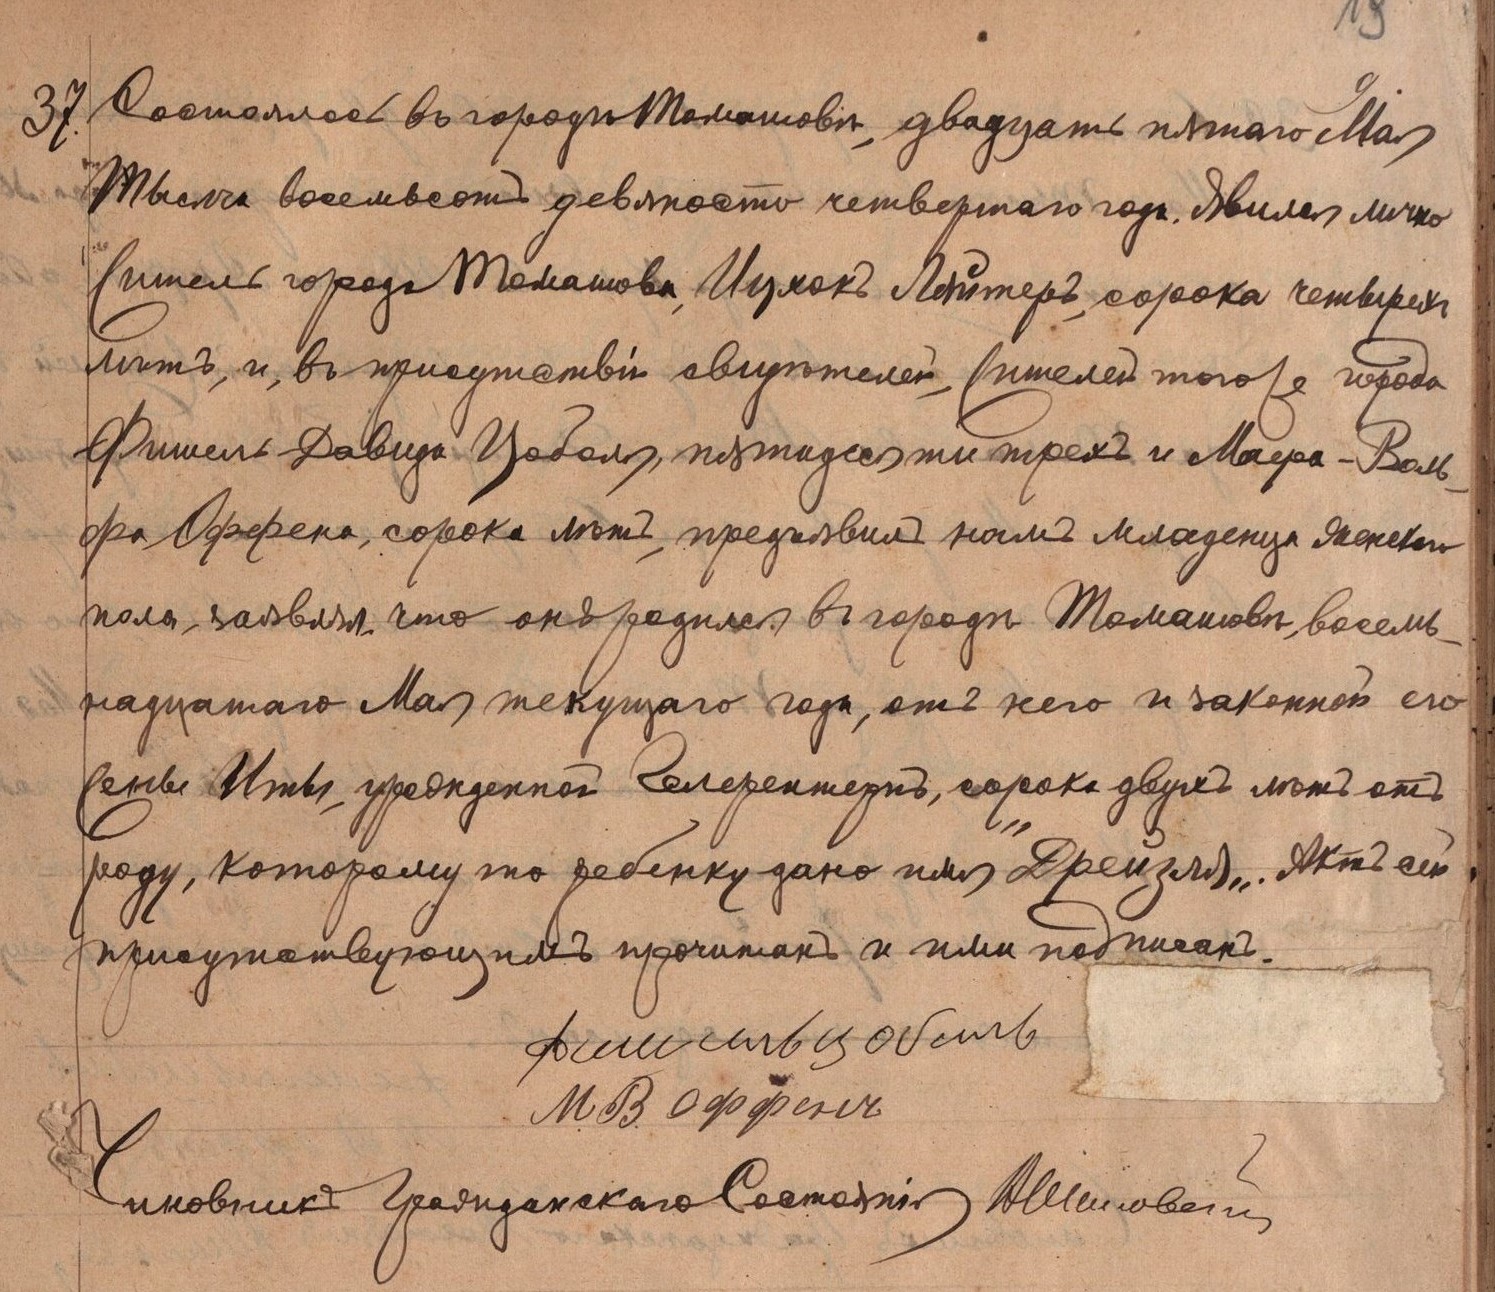 19
37. Состоялось въ городѣ Томашовѣ, двадцать пятаго Мая
Тысяча восемьсотъ девяносто четвертаго года. Явился лично
житель города Томашова, Ицлокъ Ляйтеръ, сорока четырехъ
лѣтъ, и, въ присутствіи свидѣтелей, жителей того же города
Фишель Давида Цобеля, пятидесяти трехъ и Маера-Воль-
фа Оффена, сорока лѣтъ, предъявилъ намъ младенца женскаго
пола, заявляя что онъ родился въ городѣ Томашовѣ, восемь-
надцатаго Мая текущаго года, отъ него и законной его
жены Иты, урожденной сорока двухъ лѣтъ отъ
роду, которому то ребенку дано имя "Дрейзля". Актъ сей
присутствующимъ прочитанъ и ими подписанъ.
Фишель Цобель
М.В. Оффенъ
Чиновникъ Гражданскаго Состоянія